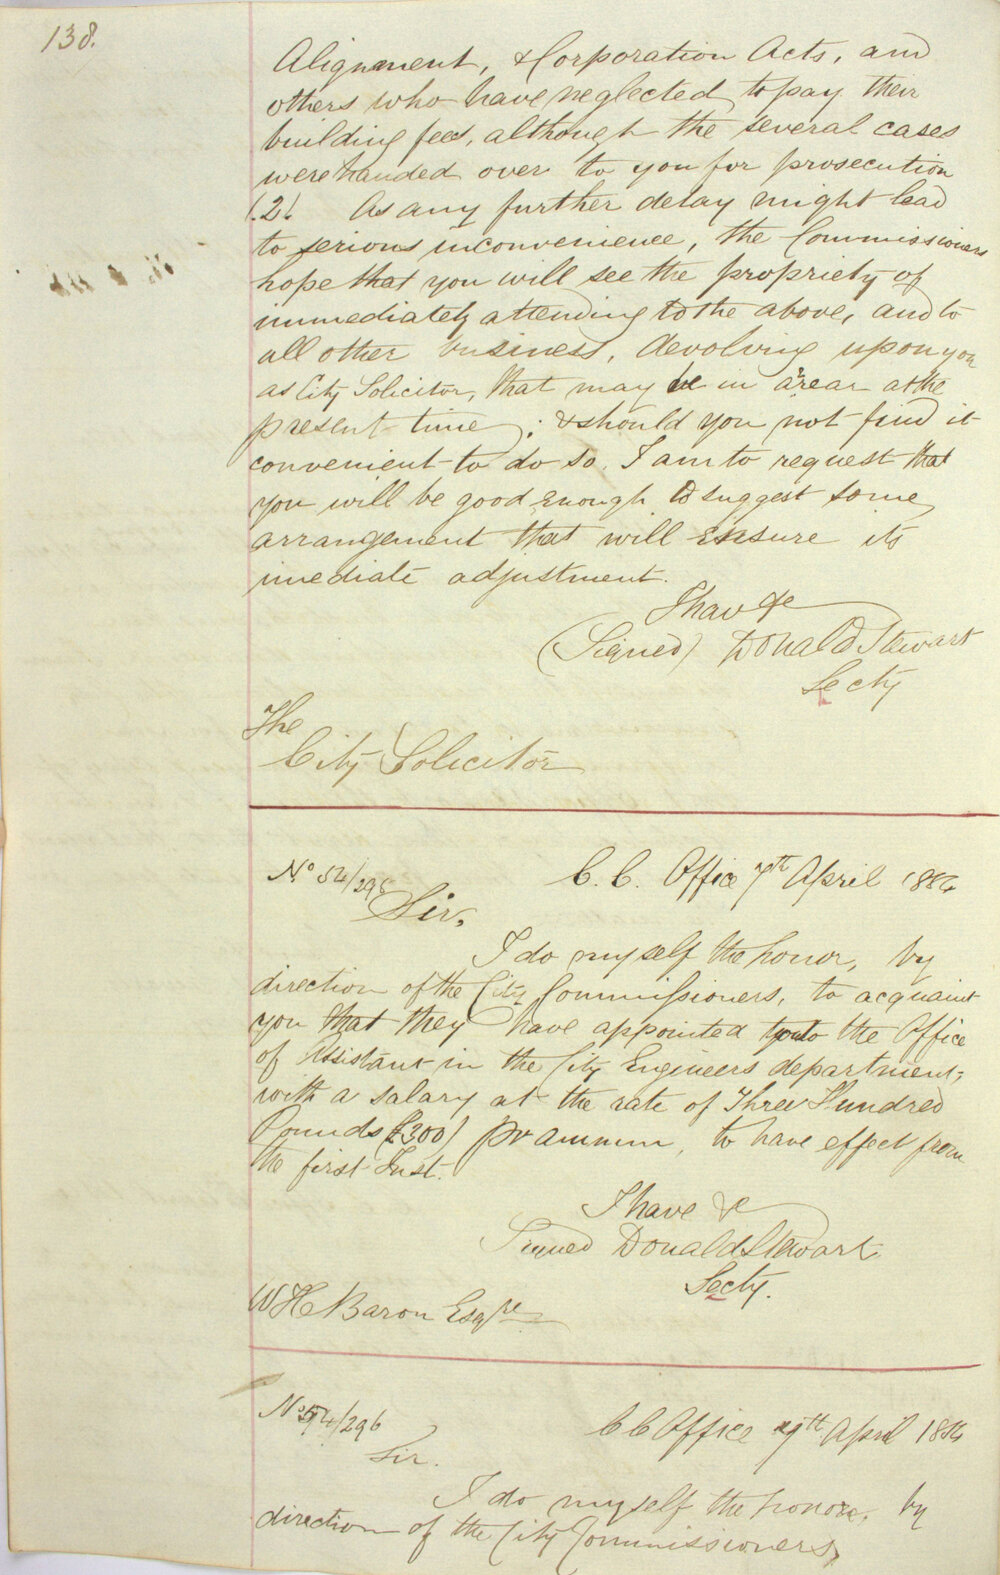 138.
Alignment, & Corporation Acts, and
others who have neglected to pay their
building fees, although the several cases
were handed over to you for prosecution
(2). As any further delay might lead
to serious inconvenience, the Commissioners
hope that you will see the propriety of
immediately attending to the above, and to
all other business, devolving upon you
as City Solicitor, that may be in arrear at the
present time; & should you not find it
convenient to do so. I am to request that
you will be good enough to suggest some
arrangement that will ensure its
imediate adjustment.
I hav &c
(Signed) Donald Stewart
Secty
The
City Solicitor
No 54/296
C. C. Office 7th April 1854
Sir,
I do myself the honor, by
direction of the City Commissioners, to acquaint
you that they have appointed you to the Office
of Assistant in the City Engineers department,
with a salary at the rate of Three Hundred
Pounds (£300) pr annum, to have effect from
the first Inst.
I have &c
Signed Donald Stewart
Secty.
W H Baron Esqre
No 54/296
C C Office 7th April 1854
Sir.
I do myself the honor, by
direction of the City Commissioners,